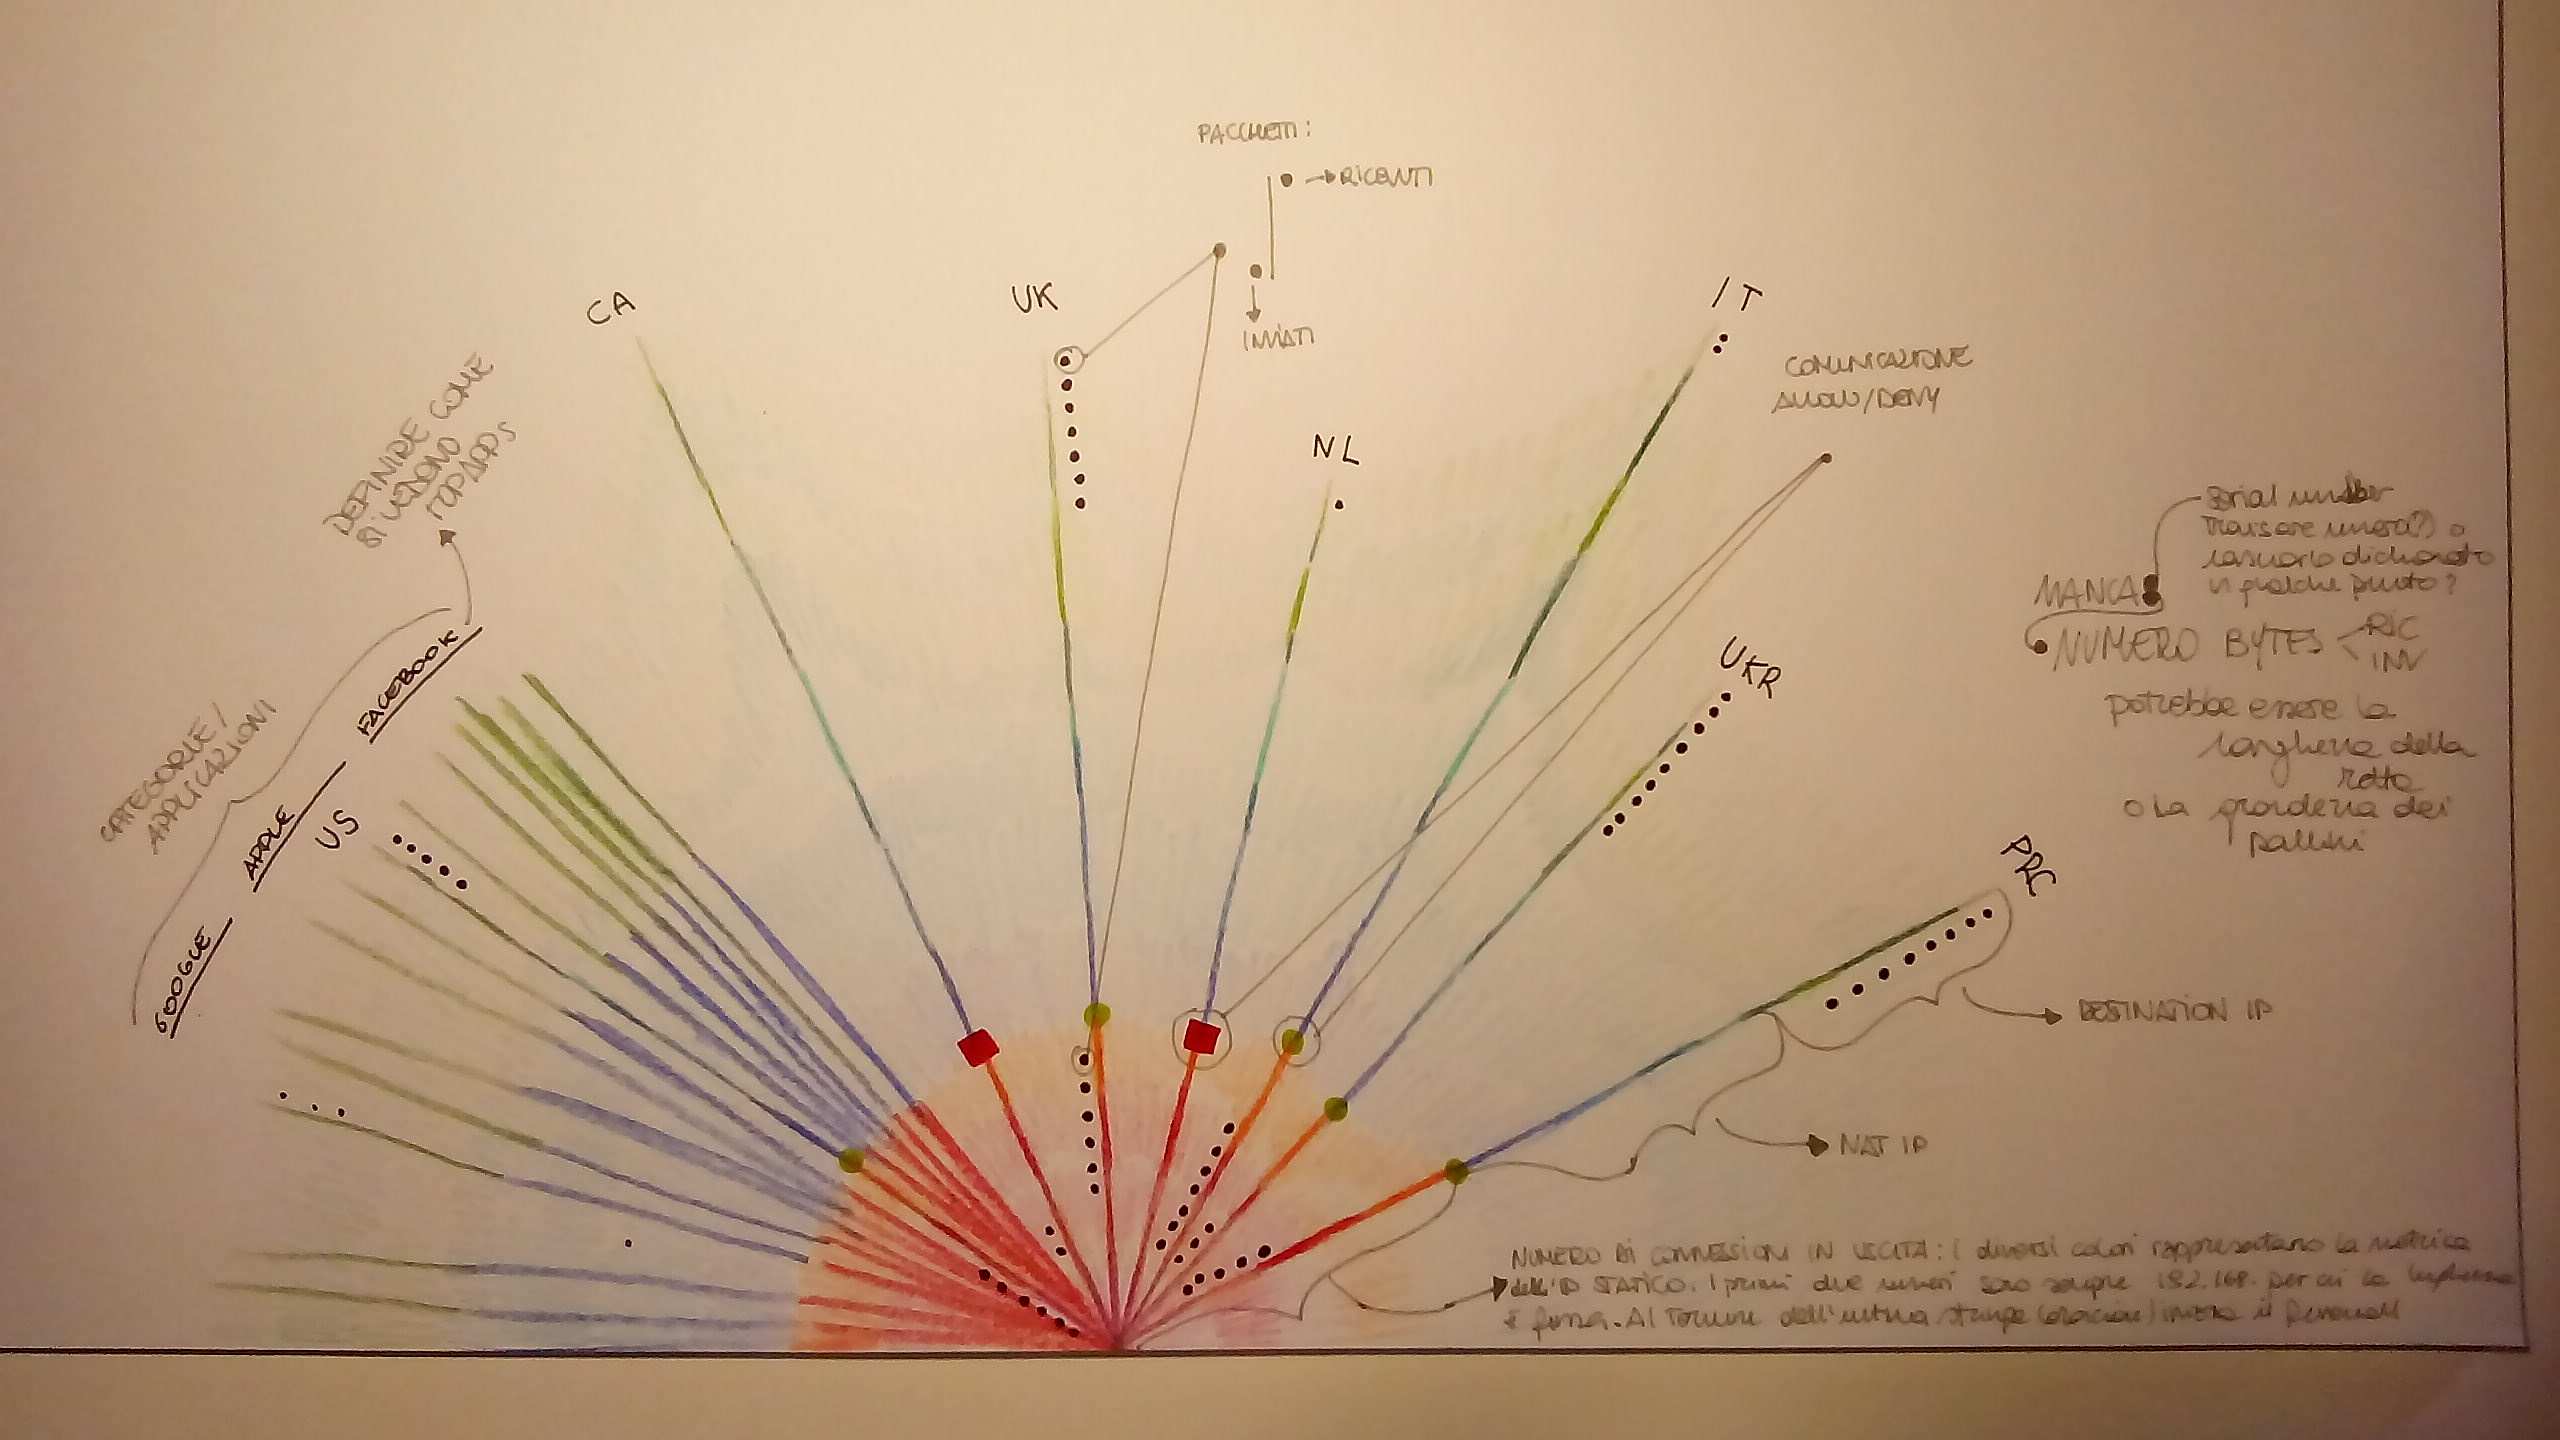 PACCHETTI:
RICEVUTI
INVIATI
CA
UK
IT
NL
COMUNICAZIONE
ALLOW/DENY
UKR
PRC
DEFINIRE COME
SI VEDONO
TOP APPS
CATEGORIE/
APPLICAZIONI
FACEBOOK
APPLE
GOOGLE
US
serial number
o
dichiarato
in qualche punto?
MANCA
NUMERO BYTES
RIC
INV
potrebbe essere la
larghezza della
retta
o la grandezza dei
pallini
DESTINATION IP
NAT IP
NUMERO DI CONNESSIONI IN USCITA: i diversi colori rappresentano la metrica
dell'IP STATICO. I primi due numeri sono sempre 192.168. per cui la
è fissa. Al termine dell'ultima (arancione) inizia il firewall